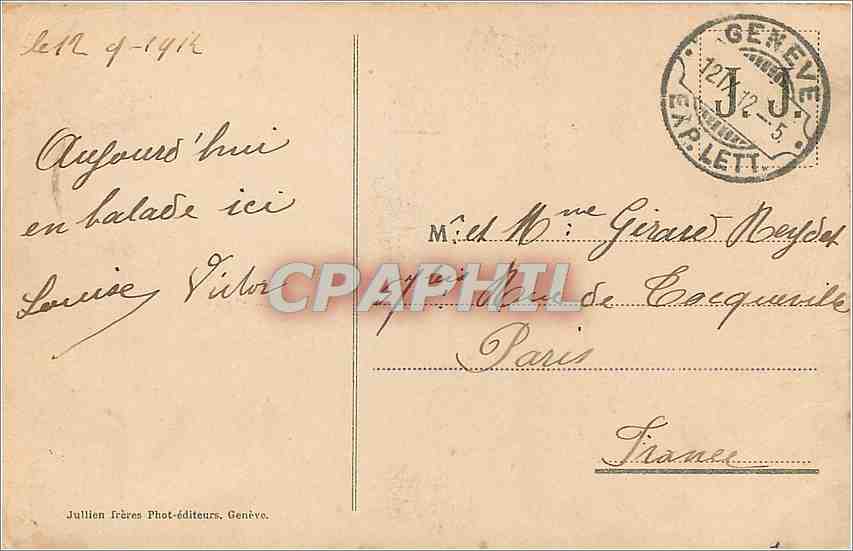 le 12 9-1912
Aujourd'hui
en balade ici
Louise Victor
GENÈVE
12 IX 12 - 5.
EXP. LETT.
J. J.
Mr. et Mme Gérard Reydet
bis Rue de Tocqueville
Paris
France
CPAPHIL
Jullien frères Phot-éditeurs, Genève.